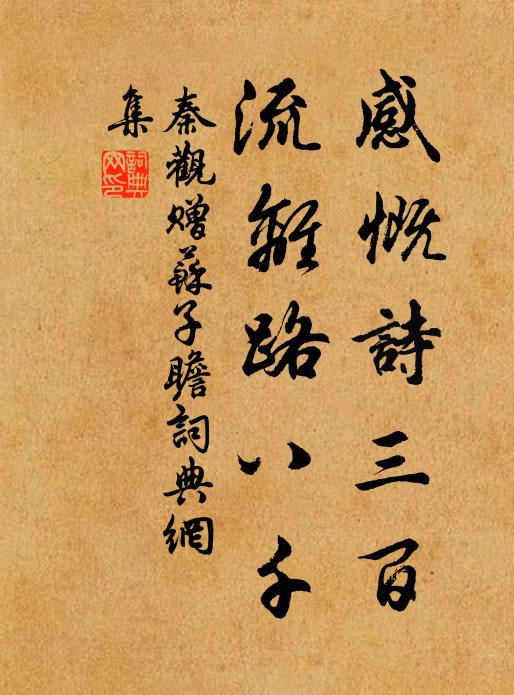 感慨詩三百
流離路八千
秦觀贈蘇子瞻詞典網
集
詞典
网印